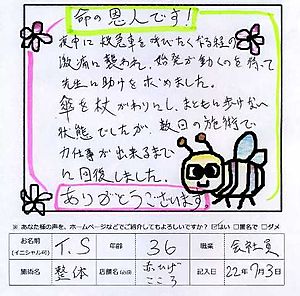 命の恩人です!
夜中に救急車を呼びたくなる程の
激痛に襲われ、始発が動くのを待って
先生に助けを求めました。
傘を杖がわりにし、まともに歩けない
状態でしたが、数回の施術で
力仕事が出来るまで
に回復しました。
ありがとうございます
※ あなた様の声を、ホームページなどでご紹介してもよろしいですか? ☑はい □匿名で □ダメ
お名前 (イニシャル可) T.S 年齢 36 職業 会社員
施術名 整体 店舗名(必須) 赤ひげ こころ 記入日 22年7月3日